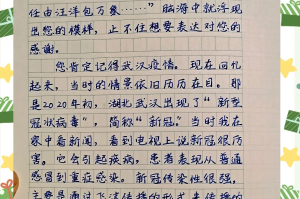 任由汪洋包万象……”脑海中就浮现
出您的模样，止不住想要表达对您的
感谢。
您肯定记得武汉疫情。现在回忆
起来，当时的情景依旧历历在目。那
是2020年初，湖北武汉出现了“新型
冠状病毒”，简称“新冠”。当时我在
家中看新闻，看到电视上说新冠很厉
害。它会引起疾病，患者表现从普通
感冒到重症感染。新冠传染性很强，
主要是通过飞沫传播的形式来传播的